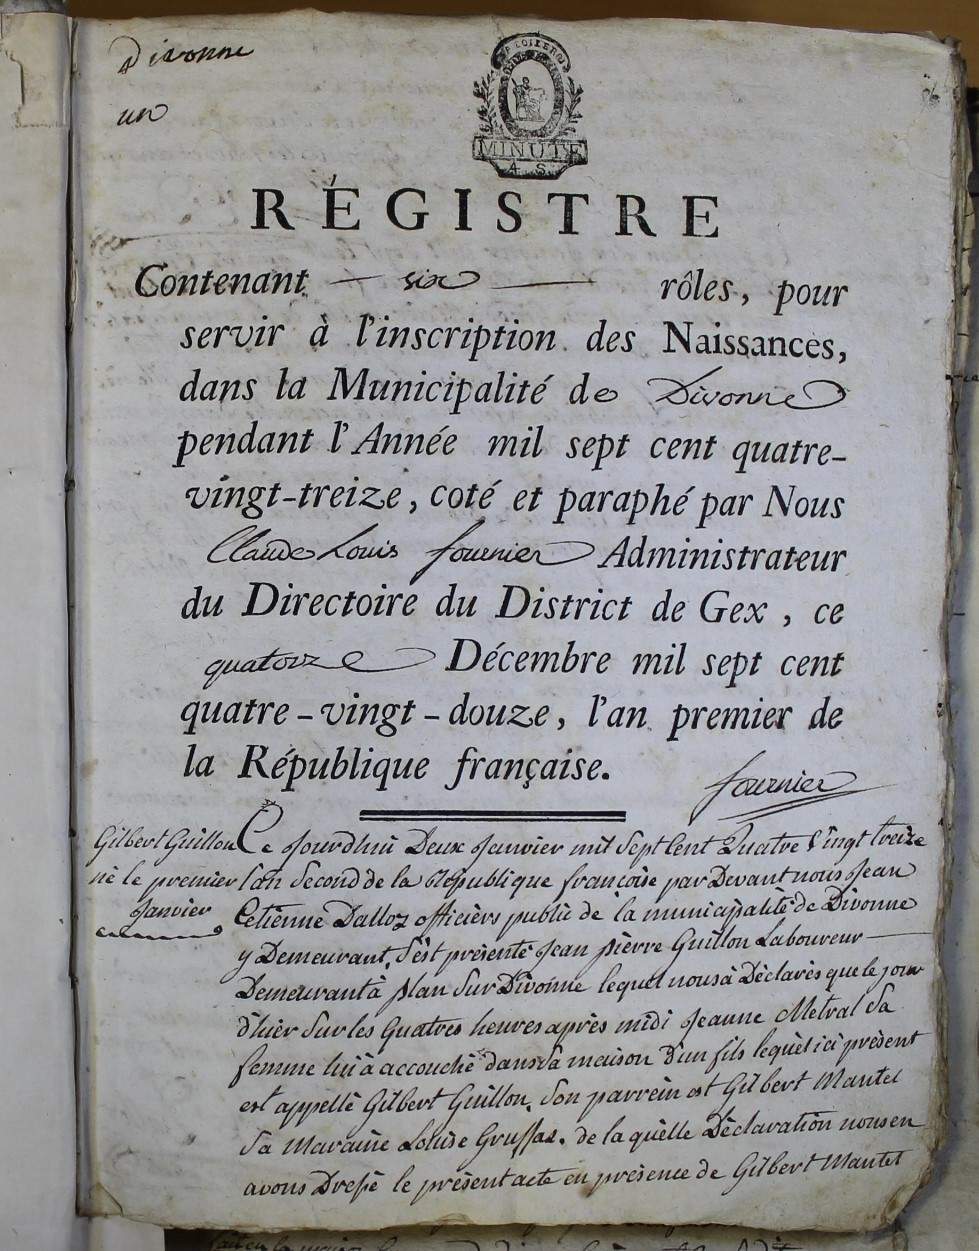 Divonne
un
LA LOI LE ROI
MINUTE
4. S.
RÉGISTRE
Contenant six rôles, pour
servir à l'inscription des Naissances,
dans la Municipalité de Divonne
pendant l'Année mil sept cent quatre-
vingt-treize, coté et paraphé par Nous
Claude Louis fournier Administrateur
du Directoire du District de Gex, ce
quatorze Décembre mil sept cent
quatre-vingt-douze, l'an premier de
la République française.
fournier
Gilbert Guillon
né le premier
Janvier
Ce Jourdhui Deux Janvier mil Sept Cent Quatre Vingt treize
l'an Second de la République françoise par Devant nous Jean
Etienne Dalloz officiers public de la municipalité de Divonne
y Demeurant, S'est présenté Jean pierre Guillon Laboureur
Demeurant à plan Sur Divonne lequel nous à Déclarés que le jour
d'hier Sur les Quatres heures après midi Jeanne Metral Sa
femme lui à accouché dans Sa maison D'un fils lequel ici présent
est appellé Gilbert Guillon, Son parrein est Gilbert Mantel
Sa Maraine Louise Grussas. de la quelle Déclaration nous en
avons Dressé le présent acte en présence de Gilbert Mantel